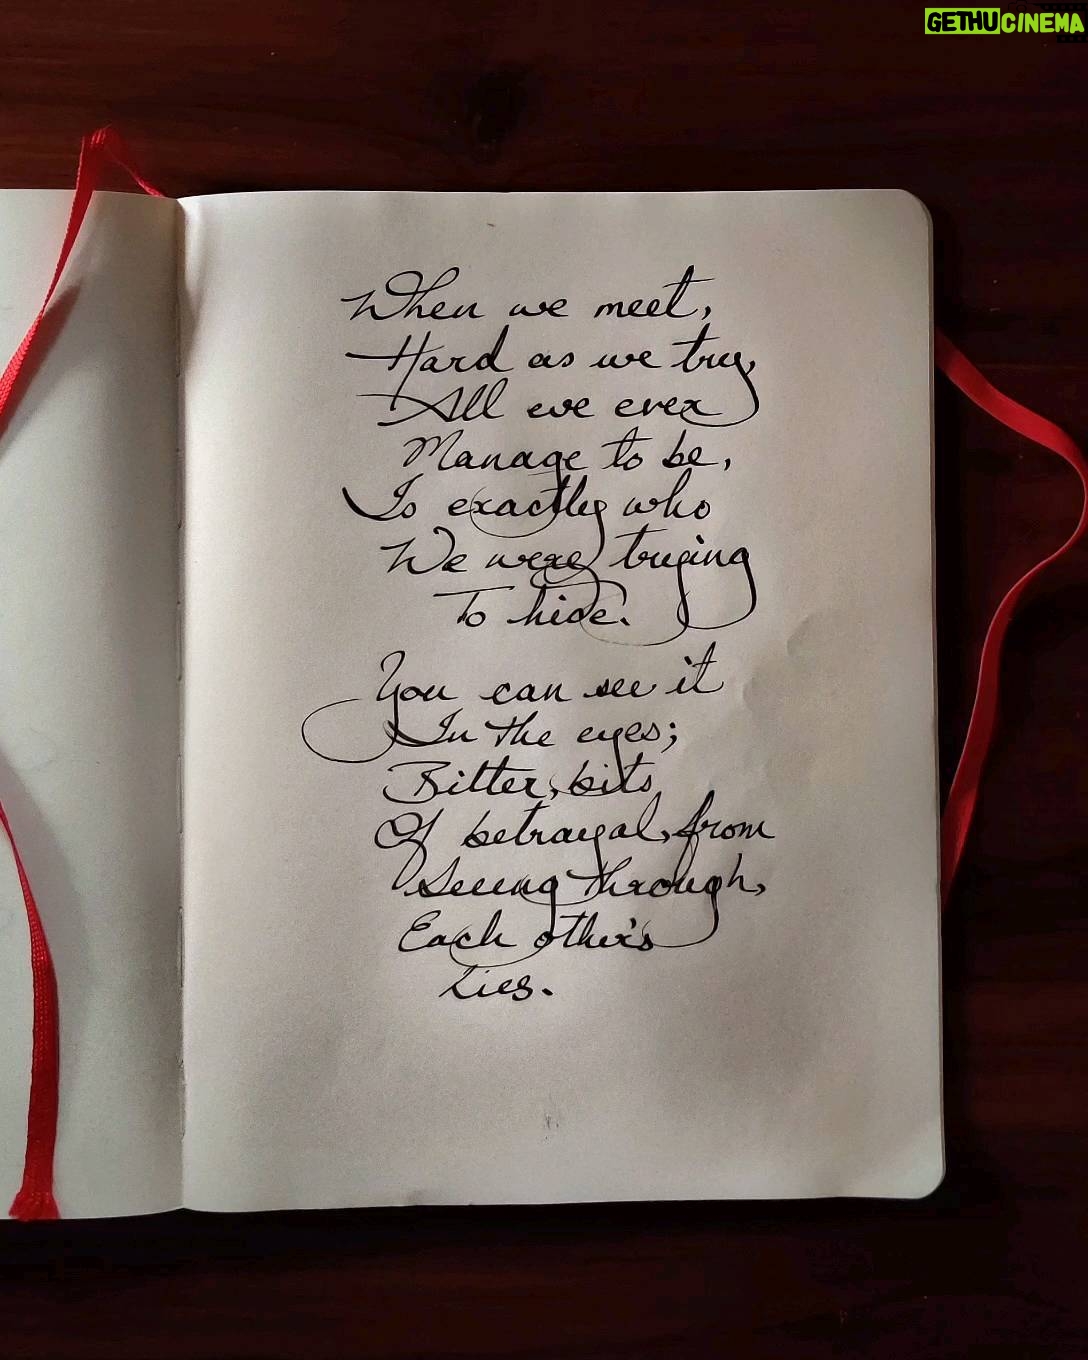 GETHUCINEMA
When we meet,
Hard as we try,
All we ever
Manage to be,
Is exactly who
We were trying
To hide.
You can see it
In the eyes;
Bitter, bits
Of betrayal, from
Seeing through,
Each other's
Lies.